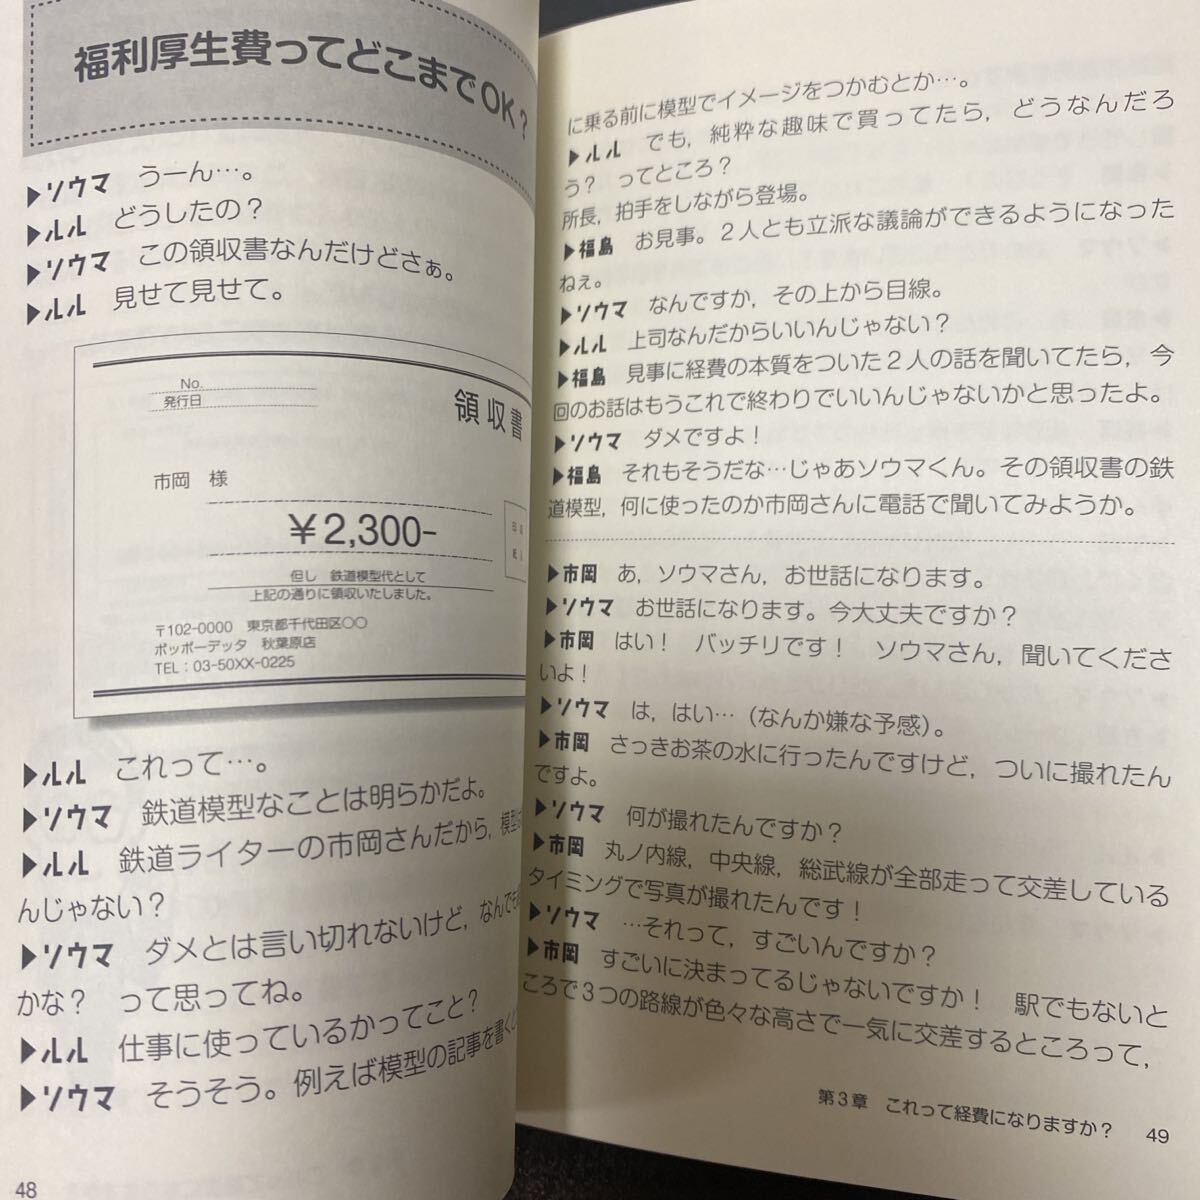 福利厚生費ってどこまでOK？
▶ソウマ　うーん…。
▶ルル　どうしたの？
▶ソウマ　この領収書なんだけどさぁ。
▶ルル　見せて見せて。
No.
発行日
領収書
市岡　様
￥2,300-
印紙
但し　鉄道模型代として
上記の通りに領収いたしました。
〒102-0000　東京都千代田区〇〇
ポッポーデッタ　秋葉原店
TEL：03-50XX-0225
▶ルル　これって…。
▶ソウマ　鉄道模型なことは明らかだよ。
▶ルル　鉄道ライターの市岡さんだから，模型
んじゃない？
▶ソウマ　ダメとは言い切れないけど，なんでも
かな？　って思ってね。
▶ルル　仕事に使っているかってこと？
▶ソウマ　そうそう。例えば模型の記事を書くと
48
に乗る前に模型でイメージをつかむとか…。
▶ルル　でも，純粋な趣味で買ってたら，どうなんだろ
う？　ってところ？
所長，拍手をしながら登場。
▶福島　お見事。２人とも立派な議論ができるようになった
ねぇ。
▶ソウマ　なんですか，その上から目線。
▶ルル　上司なんだからいいんじゃない？
▶福島　見事に経費の本質をついた２人の話を聞いてたら，今
回のお話はもうこれで終わりでいいんじゃないかと思ったよ。
▶ソウマ　ダメですよ！
▶福島　それもそうだな…じゃあソウマくん。その領収書の鉄
道模型，何に使ったのか市岡さんに電話で聞いてみようか。
▶市岡　あ，ソウマさん，お世話になります。
▶ソウマ　お世話になります。今大丈夫ですか？
▶市岡　はい！　バッチリです！　ソウマさん，聞いてくださ
いよ！
▶ソウマ　は，はい…（なんか嫌な予感）。
▶市岡　さっきお茶の水に行ったんですけど，ついに撮れたん
ですよ。
▶ソウマ　何が撮れたんですか？
▶市岡　丸ノ内線，中央線，総武線が全部走って交差している
タイミングで写真が撮れたんです！
▶ソウマ　…それって，すごいんですか？
▶市岡　すごいに決まってるじゃないですか！　駅でもないと
ころで３つの路線が色々な高さで一気に交差するところって，
第３章　これって経費になりますか？　49